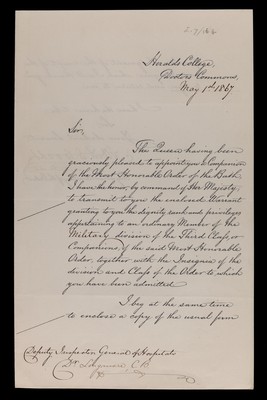 Heralds College,
Doctors Commons,
May 1st 1867
Sir,
The Queen having been
graciously pleased to appoint you a Companion
of the Most Honorable Order of the Bath,
I have the honor, by command of Her Majesty,
to transmit to you the enclosed Warrant
granting to you the dignity rank and privileges
appertaining to an ordinary Member of the
Military division of the Third Class, or
Companions, of the said Most Honorable
Order, together with the Insignia of the
division and Class of the Order to which
you have been admitted.
I beg at the same time
to enclose a copy of the usual form
Deputy Inspector General of Hospitals
C.B.